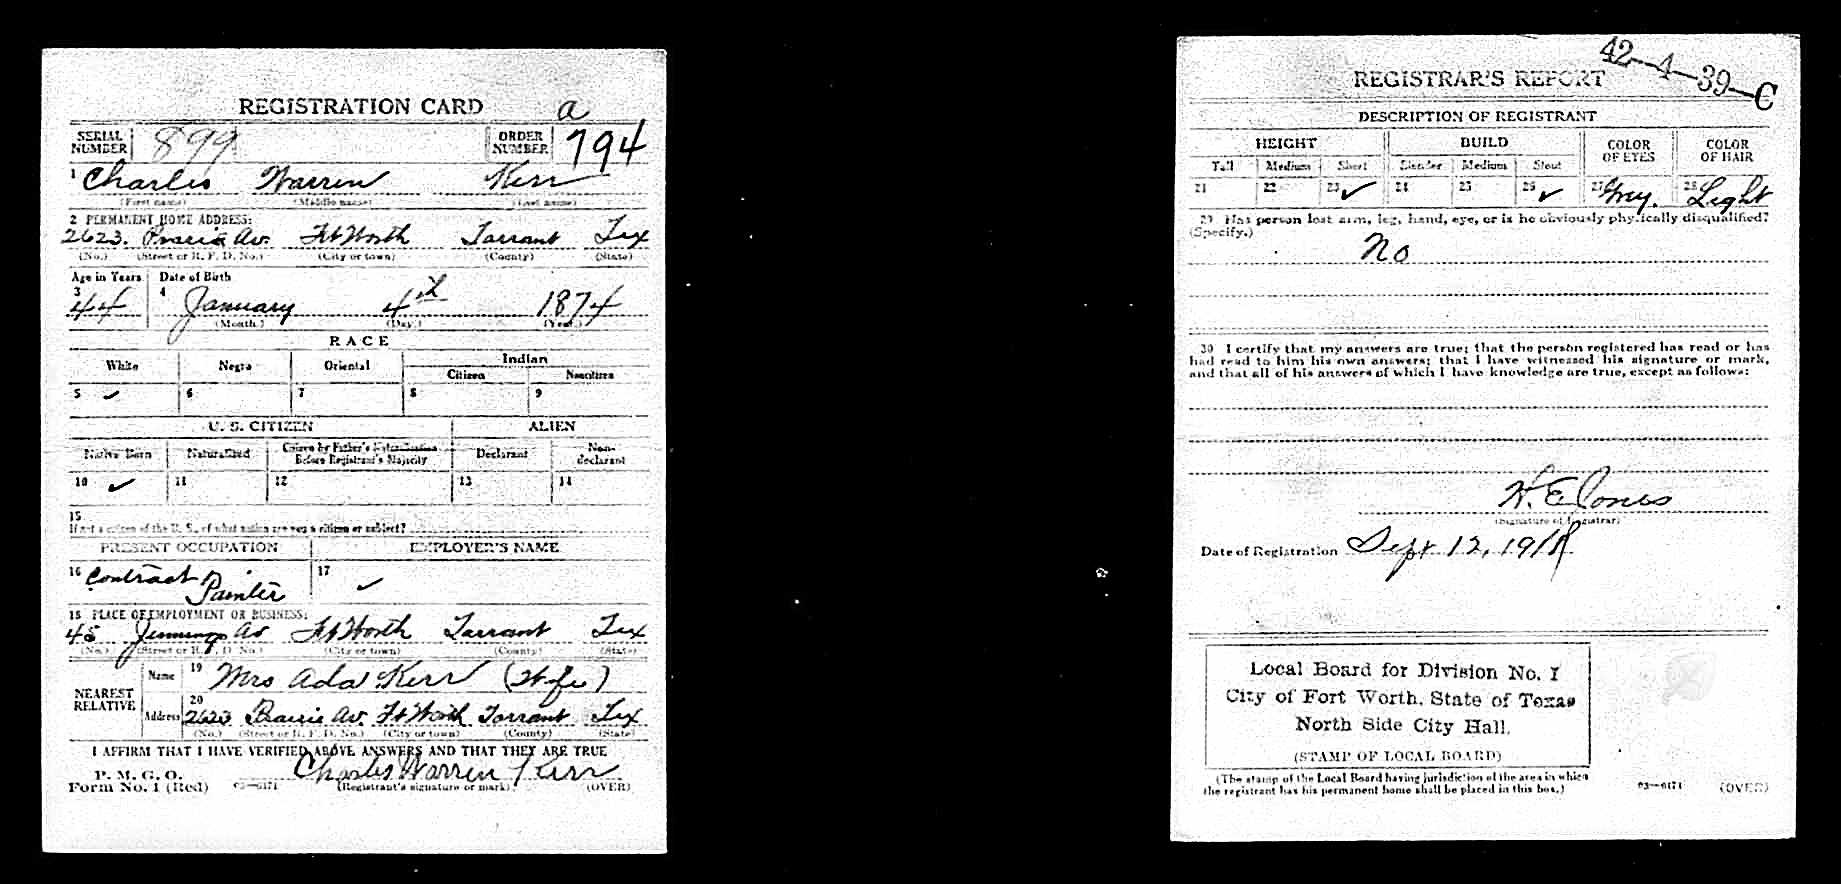 REGISTRATION CARD a
SERIAL NUMBER 899 ORDER NUMBER 794
1 Charles Warren Kerr
(First name) (Middle name) (Last name)
2 PERMANENT HOME ADDRESS:
2623 Prarie Av. Ft Worth Tarrant Tex
(No.) (Street or R. F. D. No.) (City or town) (County) (State)
Age in Years Date of Birth
3 44 4 January 4th 1874
(Month.) (Day.) (Year.)
RACE
White Negro Oriental Indian
Citizen Noncitizen
5 ✓ 6 7 8 9
U. S. CITIZEN ALIEN
Native Born Naturalized Citizen by Father's Naturalization Before Registrant's Majority Declarant Non-declarant
10 ✓ 11 12 13 14
15
If not a citizen of the U. S., of what nation are you a citizen or subject?
PRESENT OCCUPATION EMPLOYER'S NAME
16 Contract Painter 17 ✓
18 PLACE OF EMPLOYMENT OR BUSINESS:
Jennings Av Ft Worth Tarrant Tex
(No.) (Street or R. F. D. No.) (City or town) (County) (State)
NEAREST RELATIVE
Name 19 Mrs Ada Kerr (Wife)
Address 20 2623 Prarie Av. Ft Worth Tarrant Tex
(No.) (Street or R. F. D. No.) (City or town) (County) (State)
I AFFIRM THAT I HAVE VERIFIED ABOVE ANSWERS AND THAT THEY ARE TRUE
P. M. G. O.
Form No. 1 (Red) 03—6171 Charles Warren Kerr
(Registrant's signature or mark) (OVER)
42-4-39-C
REGISTRAR'S REPORT
DESCRIPTION OF REGISTRANT
HEIGHT BUILD COLOR OF EYES COLOR OF HAIR
Tall Medium Short Slender Medium Stout
21 22 23 ✓ 24 25 26 ✓ 27 Grey. 28 Light
29 Has person lost arm, leg, hand, eye, or is he obviously physically disqualified?
(Specify.)
No
30 I certify that my answers are true; that the person registered has read or has
had read to him his own answers; that I have witnessed his signature or mark,
and that all of his answers of which I have knowledge are true, except as follows:
W. E. Jones
(Signature of Registrar)
Date of Registration Sept 12, 1918
Local Board for Division No. 1
City of Fort Worth, State of Texas
North Side City Hall.
(STAMP OF LOCAL BOARD)
(The stamp of the Local Board having jurisdiction of the area in which
the registrant has his permanent home shall be placed in this box.)
03—6171 (OVER)